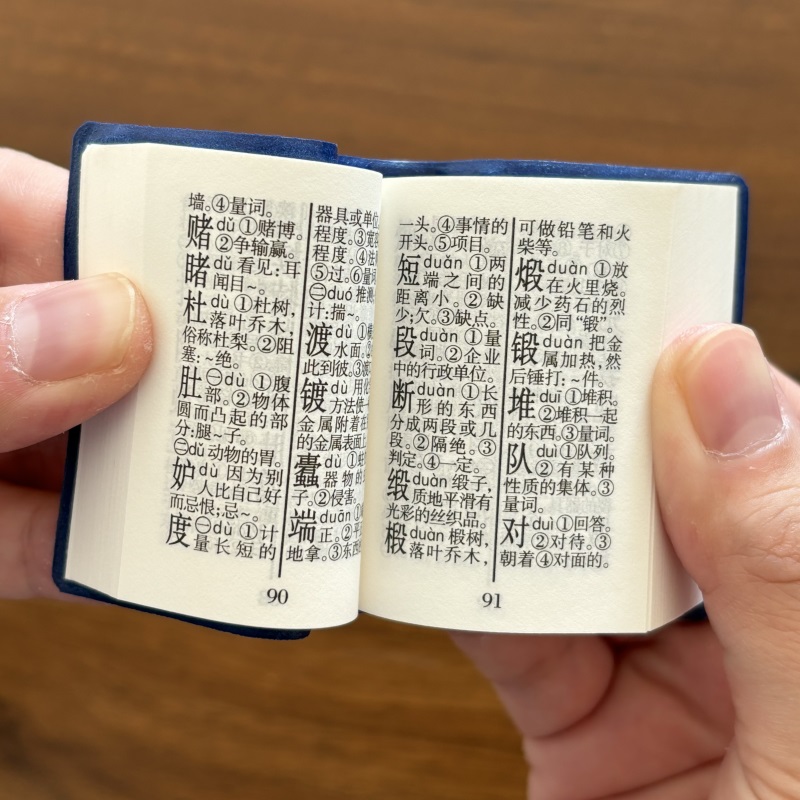 墙。④量词。
赌 dǔ ①赌博。
②争输赢。
睹 dǔ 看见:耳
闻目~。
杜 dù ①杜树,
落叶乔木,
俗称杜梨。②阻
塞:~绝。
肚 ㊀dù ①腹
部。②物体
圆而凸起的部
分:腿~子。
㊁dǔ 动物的胃。
妒 dù 因为别
人比自己好
而忌恨;忌~。
度 ㊀dù ①计
量长短的
器具或单位
程度。③宽
程度。④法
⑤过。⑥量词
㊁duó 推测
计:揣~。
渡 dù ①横
水面。②
此到彼。③
镀 dù 用化
方法使一
金属附着在
的金属表面上
蠹 dù ①蛀
器物的
子。②侵害。
端 duān ①
正。②平
地拿。③东西
90
一头。④事情的
开头。⑤项目。
短 duǎn ①两
端之间的
距离小。②缺
少;欠。③缺点。
段 duàn ①量
词。②企业
中的行政单位。
断 duàn ①长
形的东西
分成两段或几
段。②隔绝。③
判定。④一定。
缎 duàn 缎子,
质地平滑有
光彩的丝织品。
椴 duàn 椴树,
落叶乔木,
可做铅笔和火
柴等。
煅 duàn ①放
在火里烧。
减少药石的烈
性。②同“锻”。
锻 duàn 把金
属加热,然
后锤打:~件。
堆 duī ①堆积。
②堆积一起
的东西。③量词。
队 duì ①队列。
②有某种
性质的集体。③
量词。
对 duì ①回答。
②对待。③
朝着④对面的。
91